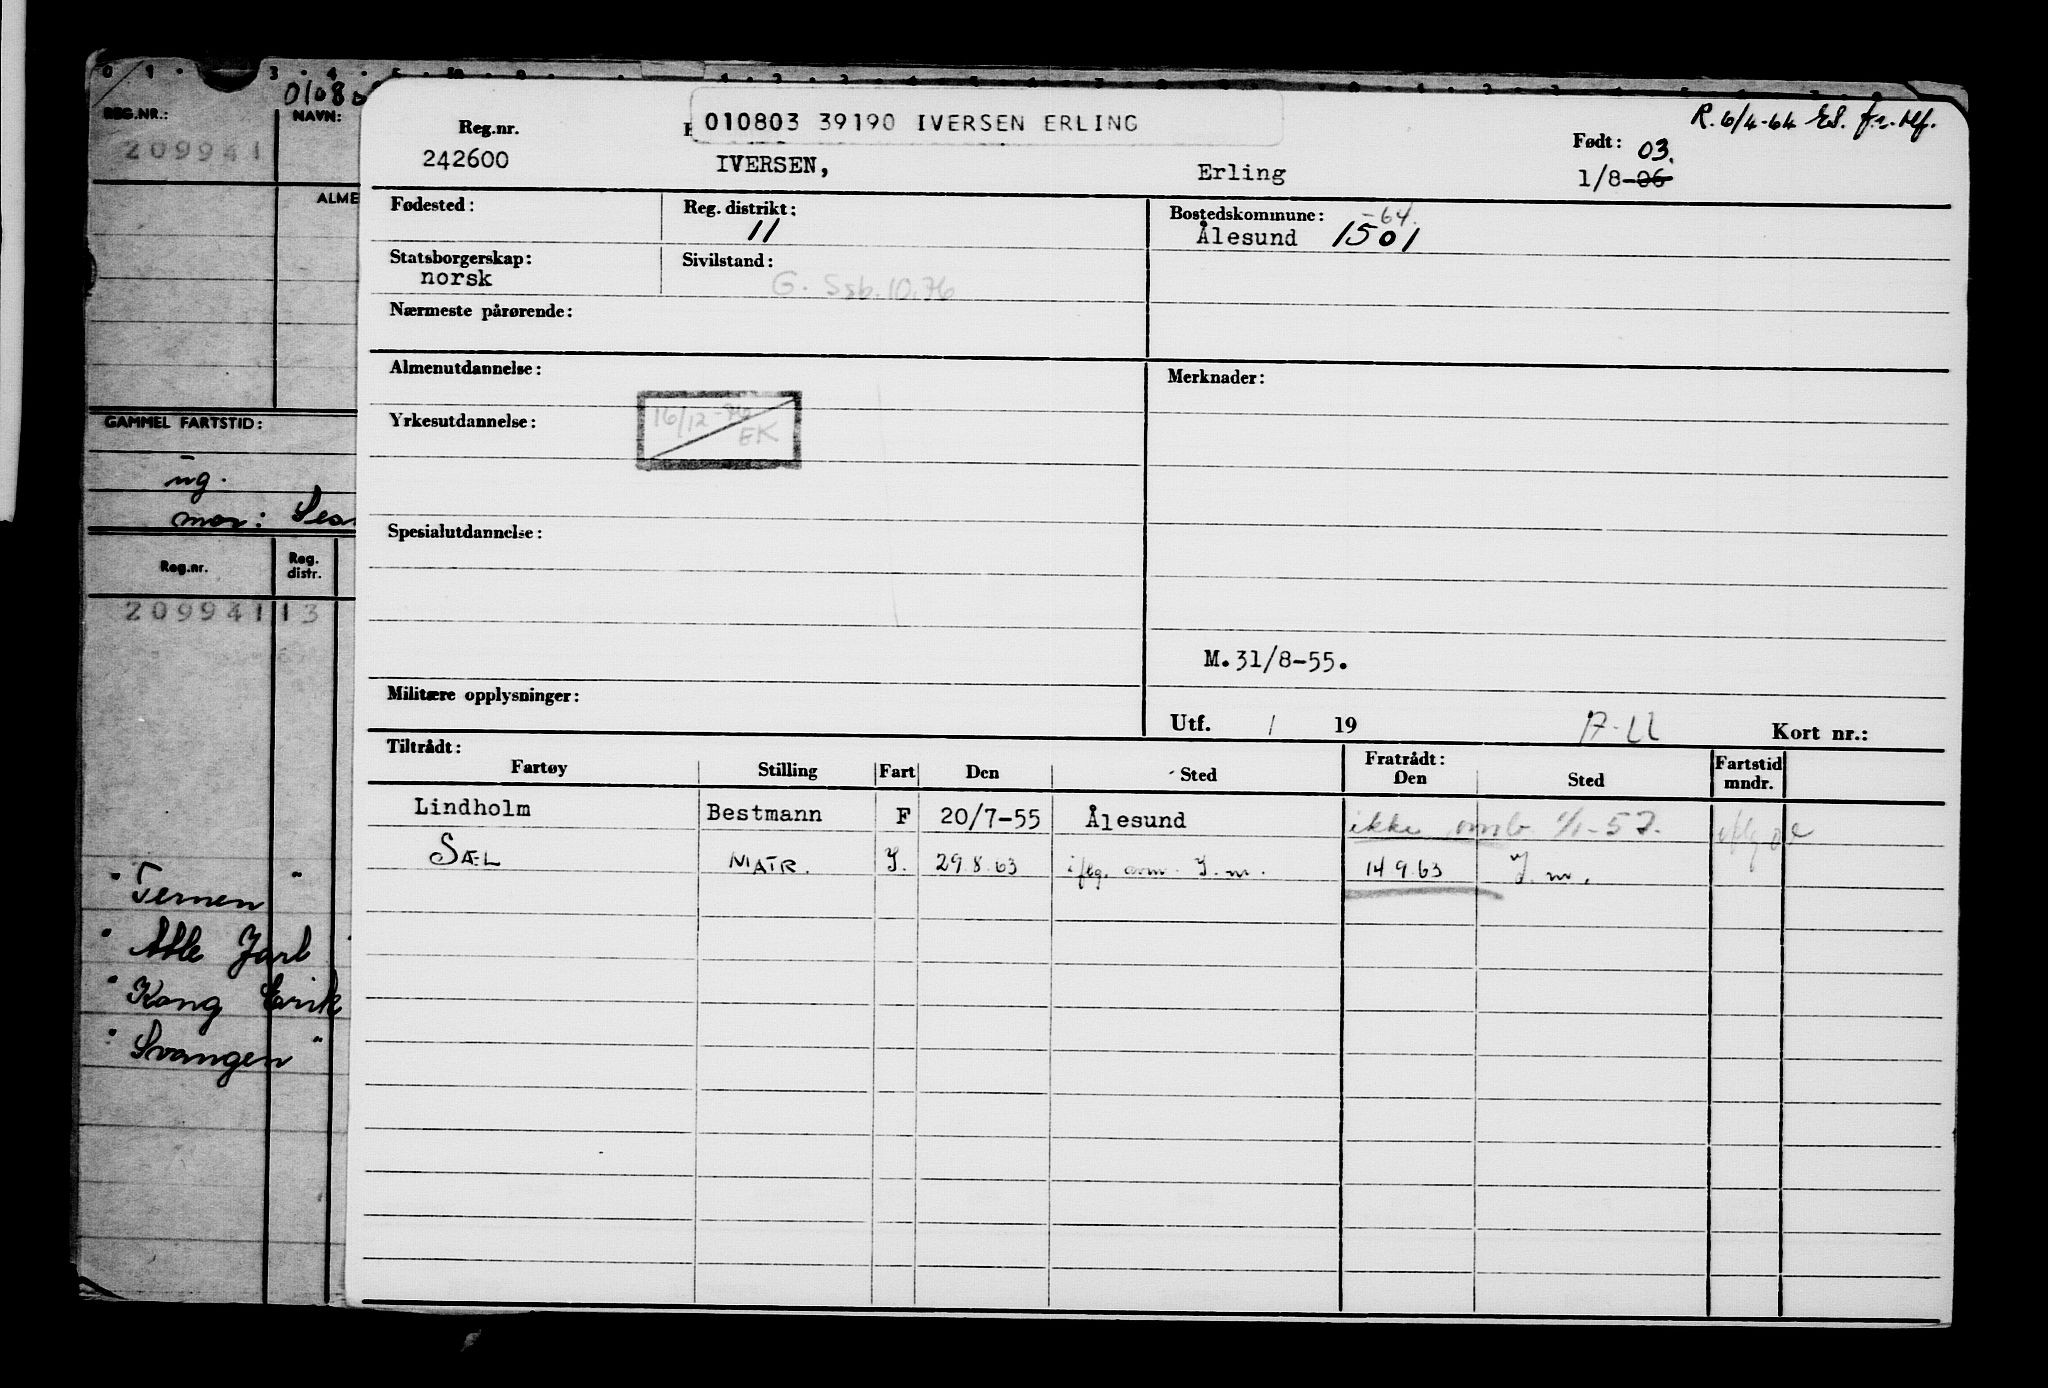 0108
REG.NR.:
NAVN:
209941
ALME
GAMMEL FARTSTID:
ug.
mor:
Reg.nr.
Reg. distr.
209941 13
" Ternen "
" Atle Jarl "
" Kong Erik
" Svangen "
R. 6/4-64 ES. f.r. tlf.
010803 39190 IVERSEN ERLING
Reg.nr.
242600
IVERSEN,
Erling
Født:
03.
1/8-06
Fødested:
Reg. distrikt:
11
Bostedskommune:
-64.
Ålesund 1501
Statsborgerskap:
norsk
Sivilstand:
G. Ssb.10.76
Nærmeste pårørende:
Almenutdannelse:
Merknader:
16/12-76
EK
Yrkesutdannelse:
Spesialutdannelse:
M.31/8-55.
Militære opplysninger:
Utf. / 19
Kort nr.:
Tiltrådt:
Fratrådt:
Fartøy Stilling Fart Den Sted Den Sted Fartstid mndr.
Lindholm Bestmann F 20/7-55 Ålesund ikke omb 1/1-57.
SÆL MATR. I. 29.8.63 iflg. I.m. 14 9.63 I.m.